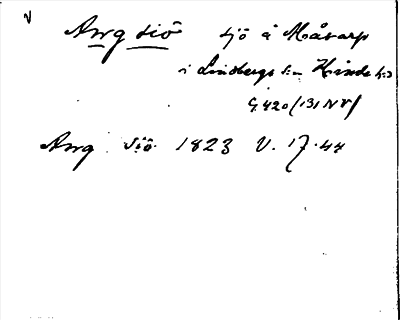 v
Arrg siö sjö å Måsarp
i Lindbergs sn Hinds hd
G 420 (131 NV)
Arrg siö 1823 V. 17.44